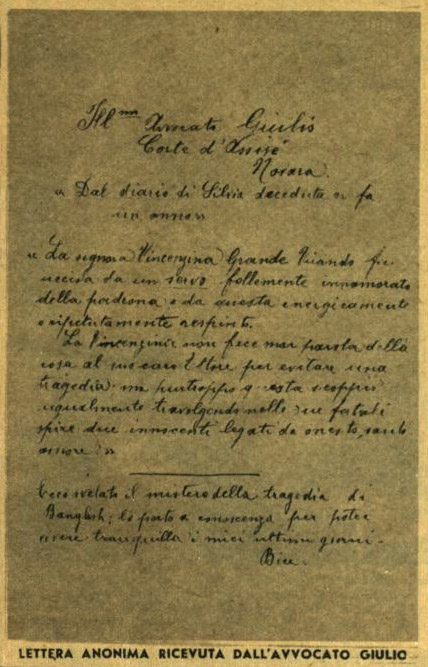 Ill.mo Avvocato Giulio
Corte d'Assise
Novara.
« Dal diario di Silvia deceduta or fa
un anno »
« La signora Vincenzina Grande Virando fu
uccisa da un servo follemente innamorato
della padrona e da questa energicamente
e ripetutamente respinto.
La Vincenzina non fece mai parola della
cosa al suo caro Ettore per evitare una
tragedia ma purtroppo questa scoppiò
ugualmente travolgendo nelle sue fatali
spire due innocenti legati da onesto, santo
amore! »
Ecco svelato il mistero della tragedia di
Bangkok; lo porto a conoscenza per poter
vivere tranquilla i miei ultimi giorni.
Bice.
LETTERA ANONIMA RICEVUTA DALL'AVVOCATO GIULIO